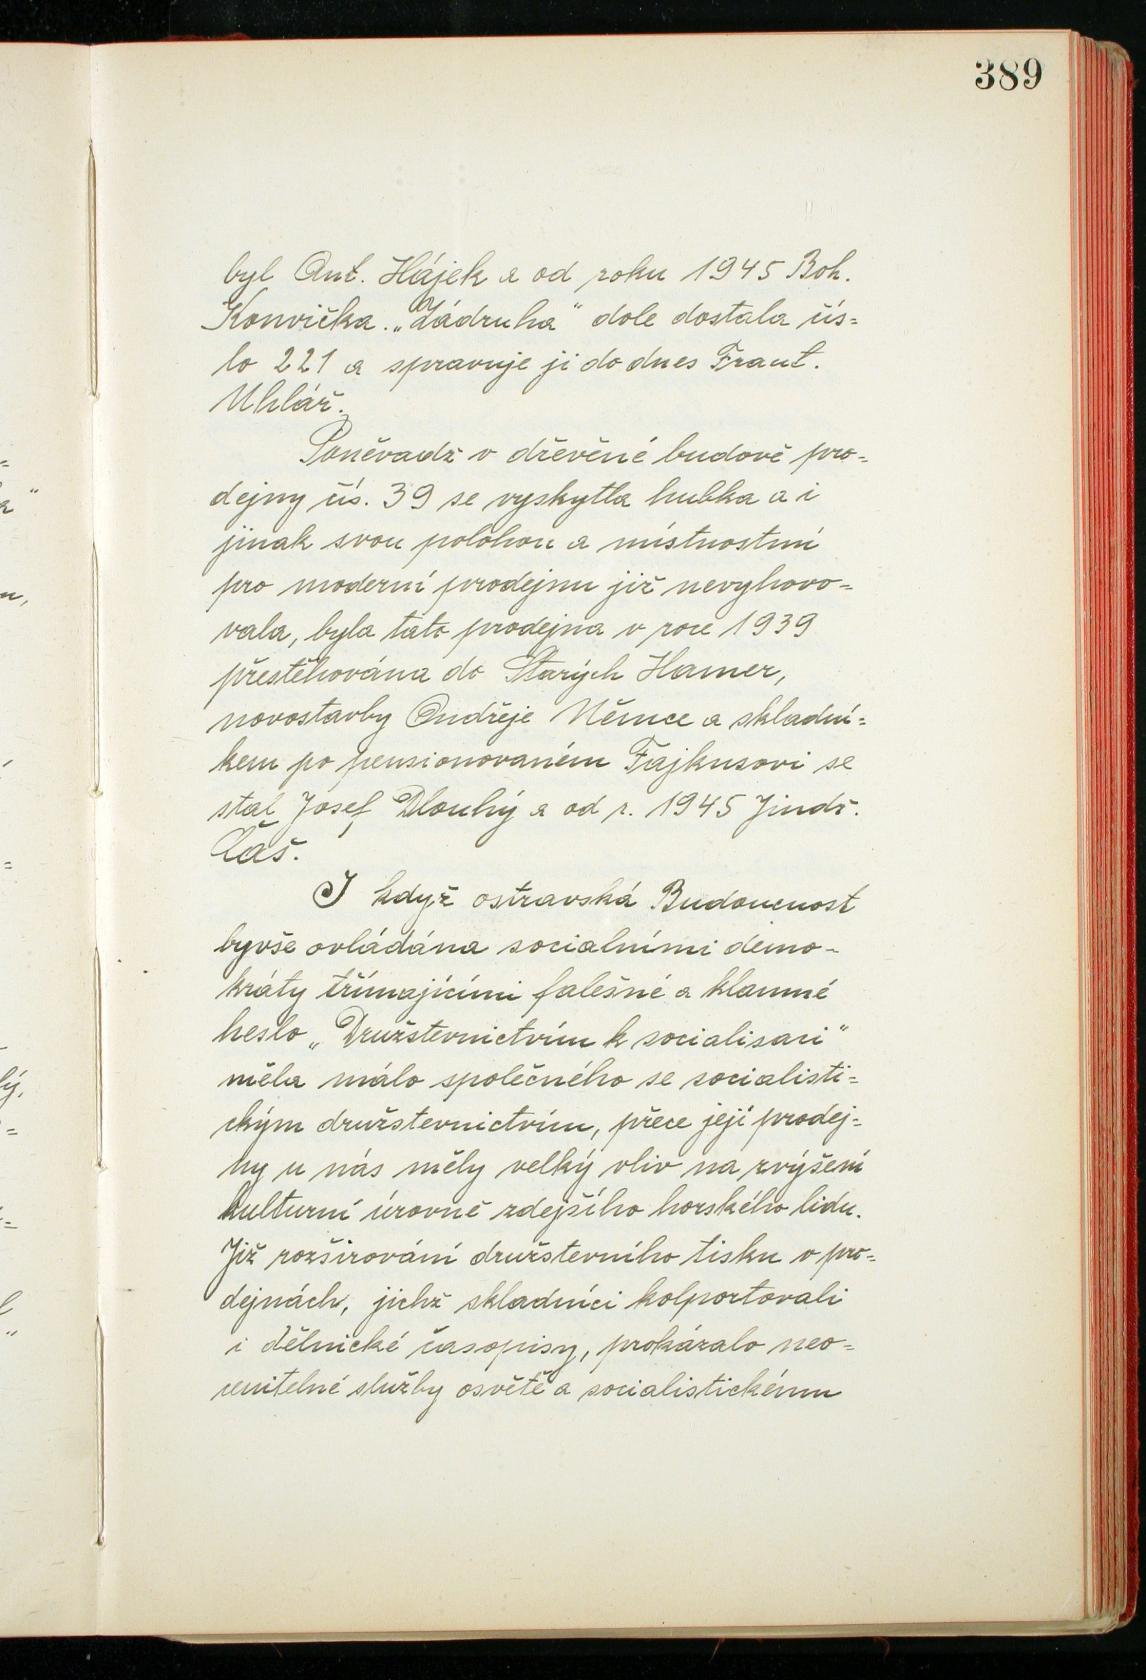 389
byl Ant. Hájek a od roku 1945 Boh.
Konvička. „Zádruha" dole dostala čís=
lo 221 a spravuje ji do dnes Frant.
Uhlář.
Poněvadž v dřevěné budově pro=
dejny čís. 39 se vyskytla hubka a i
jinak svou polohou a místnostmi
pro moderní prodejnu již nevyhovo=
vala, byla tato prodejna v roce 1939
přestěhována do Starých Hamer,
novostavby Ondřeje Němce a skladní=
kem po pensionovaném Fajkusovi se
stal Josef Dlouhý a od r. 1945 Jindř.
Čáš.
I když ostravská Budoucnost
byvše ovládána socialními demo-
kráty třímajícími falešné a klamné
heslo „Družstevnictvím k socialisaci"
měla málo společného se socialisti=
ckým družstevnictvím, přece její prodej=
ny u nás měly velký vliv na zvýšení
kulturní úrovně zdejšího horského lidu.
Již rozšiřování družstevního tisku v pro=
dejnách, jichž skladníci kolportovali
i dělnické časopisy, prokázalo neo=
cenitelné služby osvětě a socialistickému